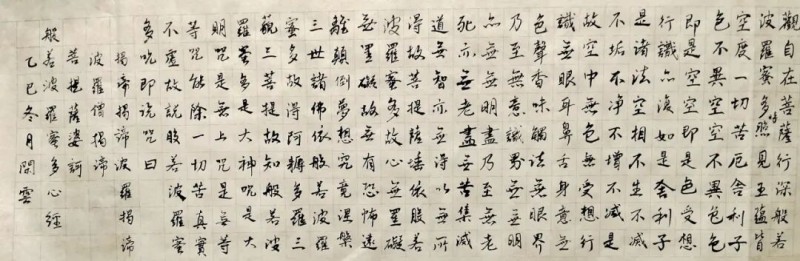 觀自在菩薩行深般若
波羅蜜多時照見五蘊皆
空度一切苦厄舍利子
色不異空空不異色色
即是空空即是色受想
行識亦復如是舍利子
是諸法空相不生不滅
不垢不净不增不減是
故空中無色無受想行
識無眼耳鼻舌身意無
色聲香味觸法無眼界
乃至無意識界無無明
亦無無明盡乃至無老
死亦無老盡無苦集滅
道無智亦無得以無所
得故菩提薩埵依般若
波羅蜜多故心無罣礙
無罣礙故無有恐怖遠
離顛倒夢想究竟涅槃
三世諸佛依般若波羅
蜜多故得阿耨多羅三
藐三菩提故知般若波
羅蜜多是大神咒是大
明咒是無上咒是無等
等咒能除一切苦真實
不虛故說般若波羅蜜
多咒即說咒曰
揭諦揭諦波羅揭諦
波羅僧揭諦
菩提薩婆訶
般若波羅蜜多心經
乙巳冬月閑雲